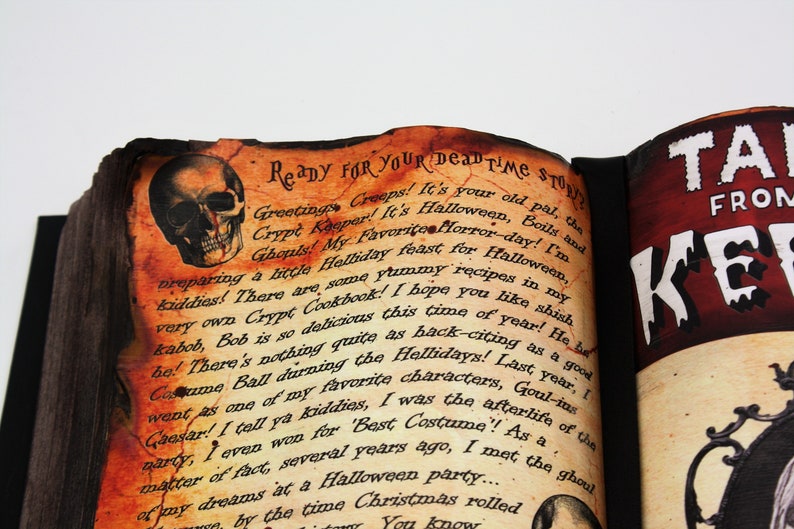 READY FOR YOUR DEADTIME STORY?
Greetings, Creeps! It's your old pal, the
Crypt Keeper! It's Halloween, Boils and
Ghouls! My Favorite Horror-day! I'm
preparing a little Helliday feast for Halloween,
kiddies! There are some yummy recipes in my
very own Crypt Cookbook! I hope you like shish
kabob, Bob is so delicious this time of year! He he
he! There's nothing quite as hack-citing as a good
Costume Ball durning the Hellidays! Last year, I
went as one of my favorite characters, Goul-ius
Caesar! I tell ya kiddies, I was the afterlife of the
party, I even won for 'Best Costume'! As a
matter of fact, several years ago, I met the ghoul
of my dreams at a Halloween party...
by the time Christmas rolled
history. You know
TA
FROM
KEE